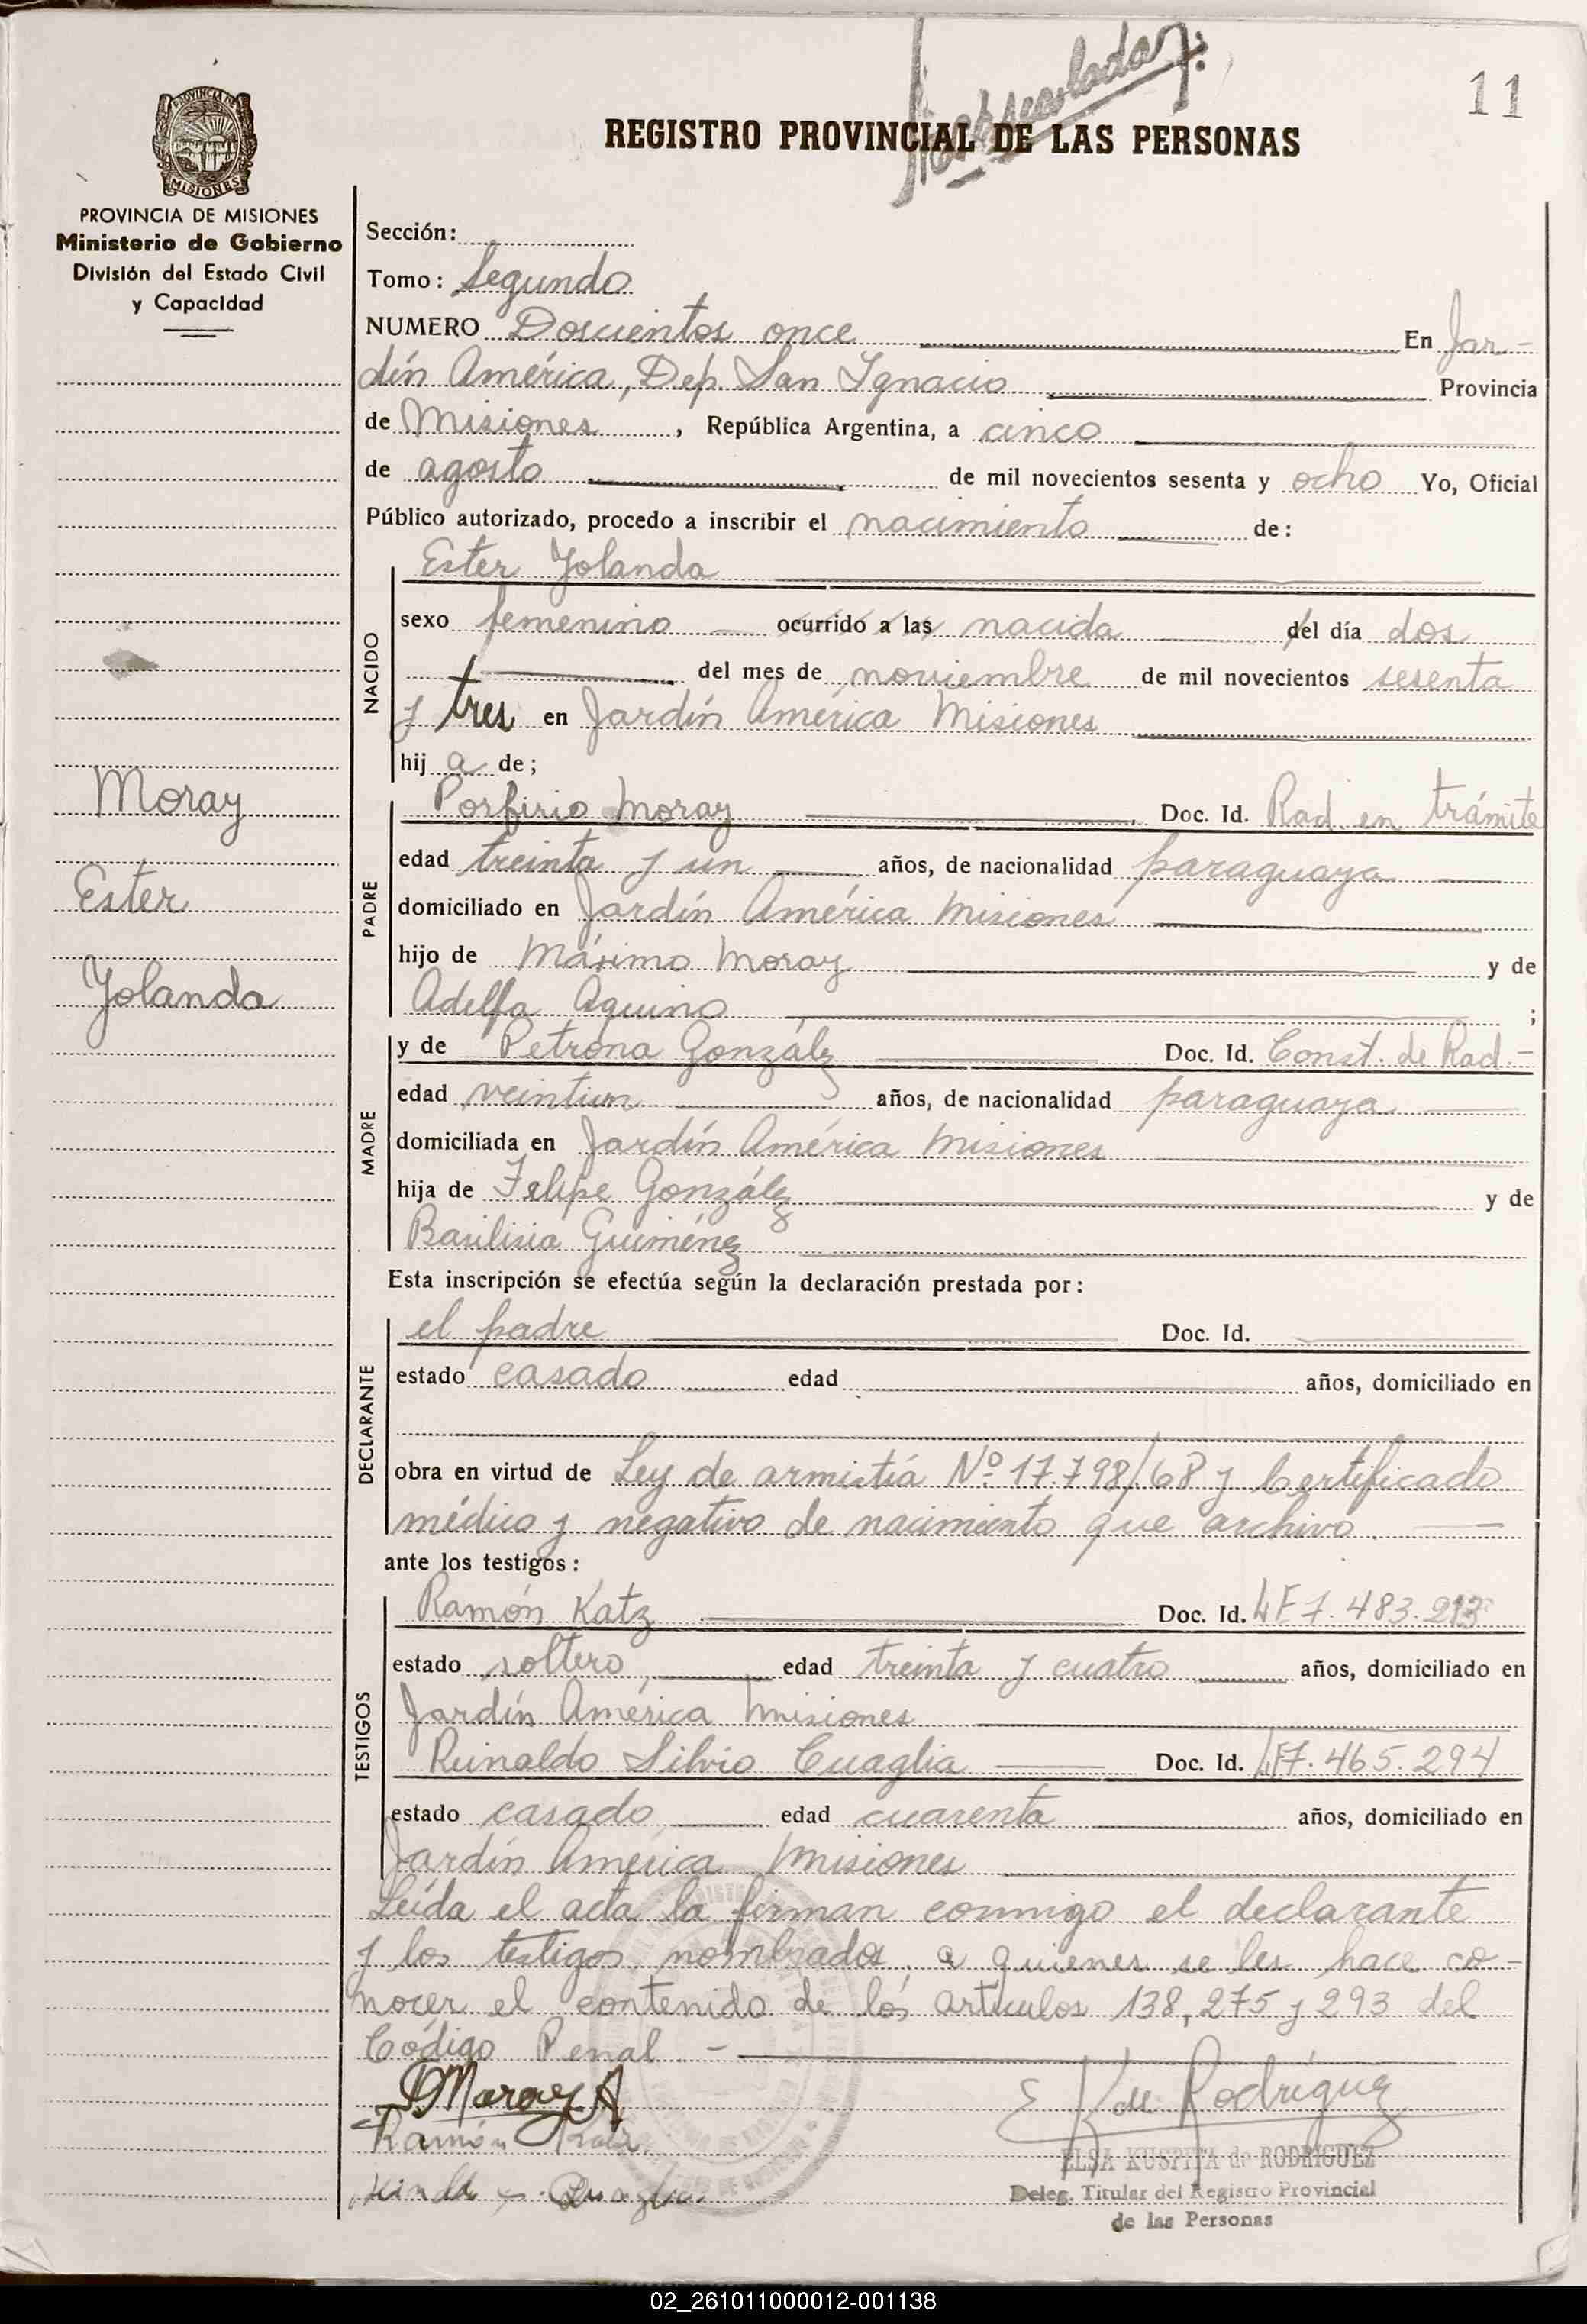 Matriculada
11
REGISTRO PROVINCIAL DE LAS PERSONAS
PROVINCIA DE MISIONES
Ministerio de Gobierno
División del Estado Civil
y Capacidad
Moray
Ester
Yolanda
Sección:
Tomo: Segundo
NUMERO Doscientos once En Jar-
dín América, Dep. San Ignacio Provincia
de Misiones, República Argentina, a cinco
de agosto de mil novecientos sesenta y ocho Yo, Oficial
Público autorizado, procedo a inscribir el nacimiento de:
NACIDO
Ester Yolanda
sexo femenino ocurrido a las nacida del día dos
del mes de noviembre de mil novecientos sesenta
y tres en Jardín América Misiones
hij a de;
PADRE
Porfirio Moray Doc. Id. Rad. en trámite
edad treinta y un años, de nacionalidad paraguaya
domiciliado en Jardín América Misiones
hijo de Máximo Moray y de
Adelfa Aquino ;
MADRE
y de Petrona González Doc. Id. Const. de Rad.-
edad veintiun años, de nacionalidad paraguaya
domiciliada en Jardín América Misiones
hija de Felipe González y de
Basilisia Guiménez
Esta inscripción se efectúa según la declaración prestada por:
DECLARANTE
el padre Doc. Id.
estado casado edad años, domiciliado en
obra en virtud de Ley de armistía Nº 17.798/68 y Certificado
médico y negativo de nacimiento que archivo.
ante los testigos:
TESTIGOS
Ramón Katz Doc. Id. 7.483.213
estado soltero edad treinta y cuatro años, domiciliado en
Jardín América Misiones
Reinaldo Silvio Cuaglia Doc. Id. 7.465.294
estado casado edad cuarenta años, domiciliado en
Jardín América Misiones
Leída el acta la firman conmigo el declarante
y los testigos nombrados a quienes se les hace co-
nocer el contenido de los artículos 138, 275 y 293 del
Código Penal.-
Moray A
Ramón Katz
E K de Rodríguez
ELSA KUSPITA de RODRIGUEZ
Deleg. Titular del Registro Provincial
de las Personas
02_261011000012-001138